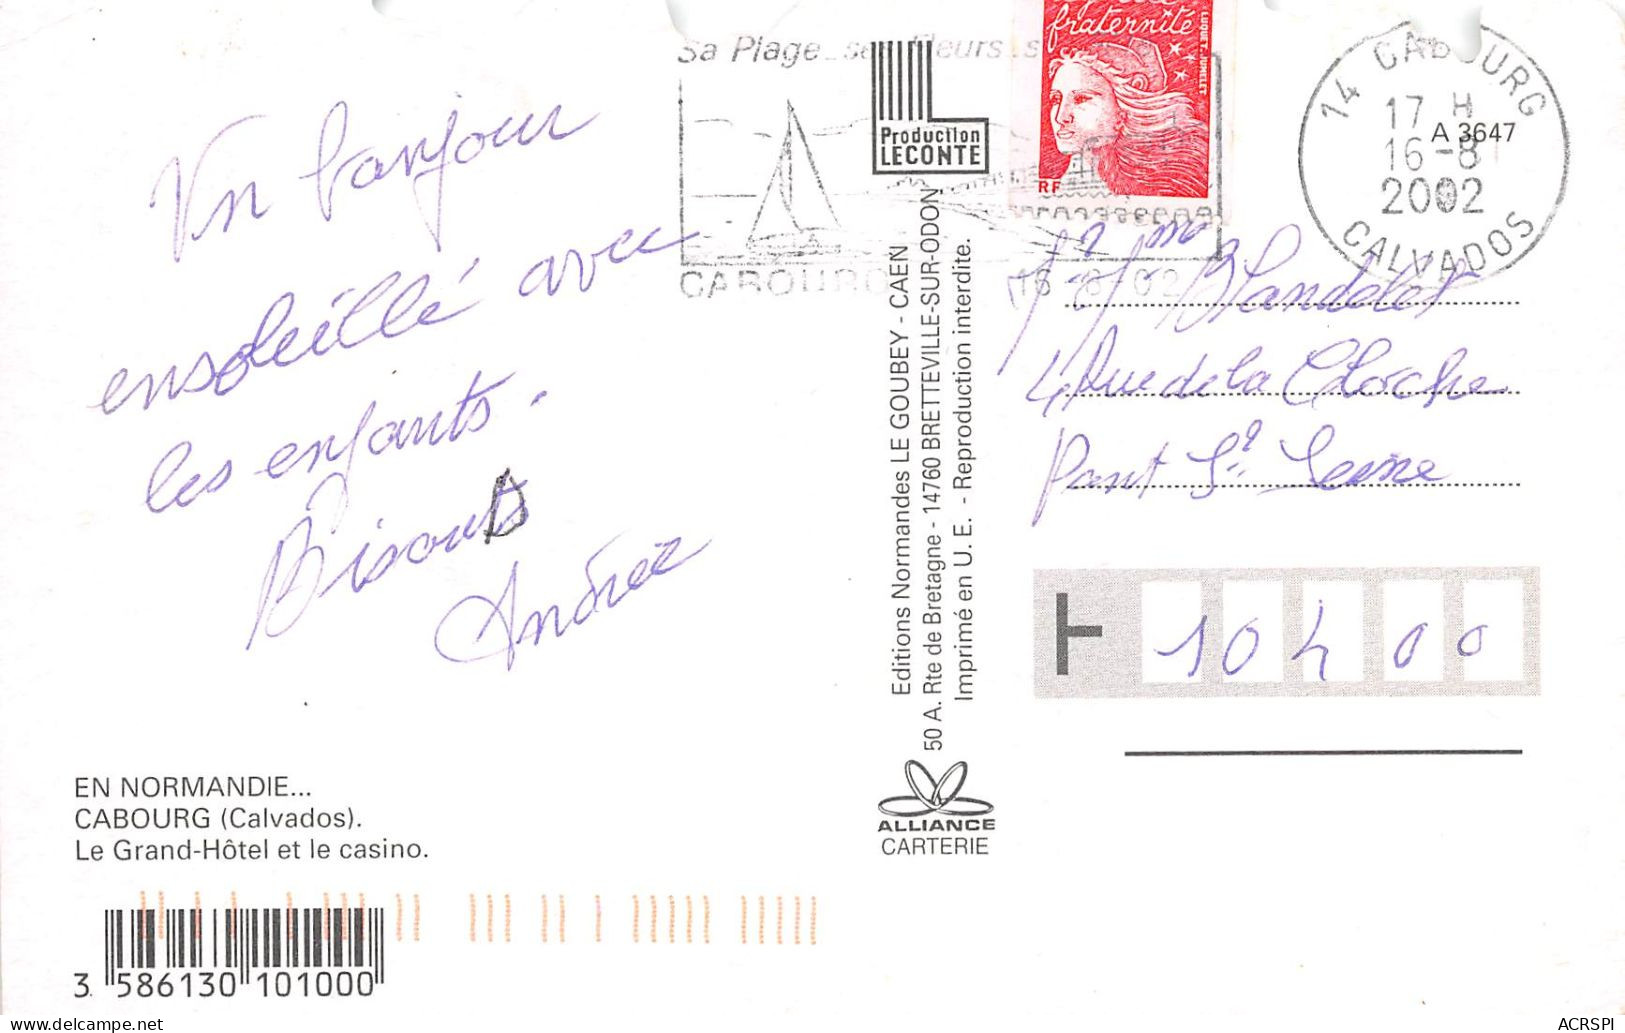 Un bonjour
ensoleillé avec
les enfants.
Bisous
Andrée
EN NORMANDIE...
CABOURG (Calvados).
Le Grand-Hôtel et le casino.
3 586130 101000
Sa Plage ses fleurs s
CABOURG
16-8-02
Production
LECONTE
Editions Normandes LE GOUBEY - CAEN
50 A. Rte de Bretagne - 14760 BRETTEVILLE-SUR-ODON
Imprimé en U. E. - Reproduction interdite.
ALLIANCE
CARTERIE
fraternité
LUQUET - JUMELET
RF
14 CABOURG
17 H
A 3647
16-8
2002
CALVADOS
Blandelet
4 Rue de la Cloche
Pont Ste Seine
10400
delcampe.net
ACRSPI